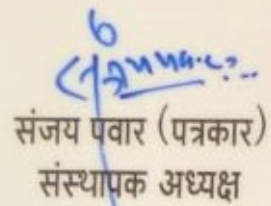 संजय पवार (पत्रकार)
संस्थापक अध्यक्ष